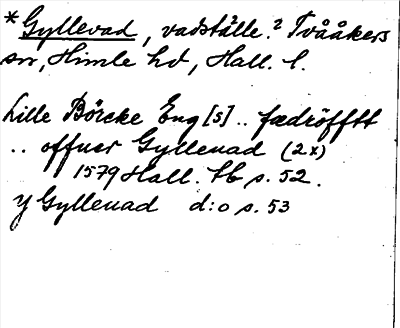 *Gyllevad, vadställe.? Tvååkers
sn, Himle hd, Hall. l.
Lille Börcke Eng [s] .. fædröfftt
.. offuer Gylleuad (2x)
1579 Hall. tb s. 52.
y Gylleuad d:o s. 53